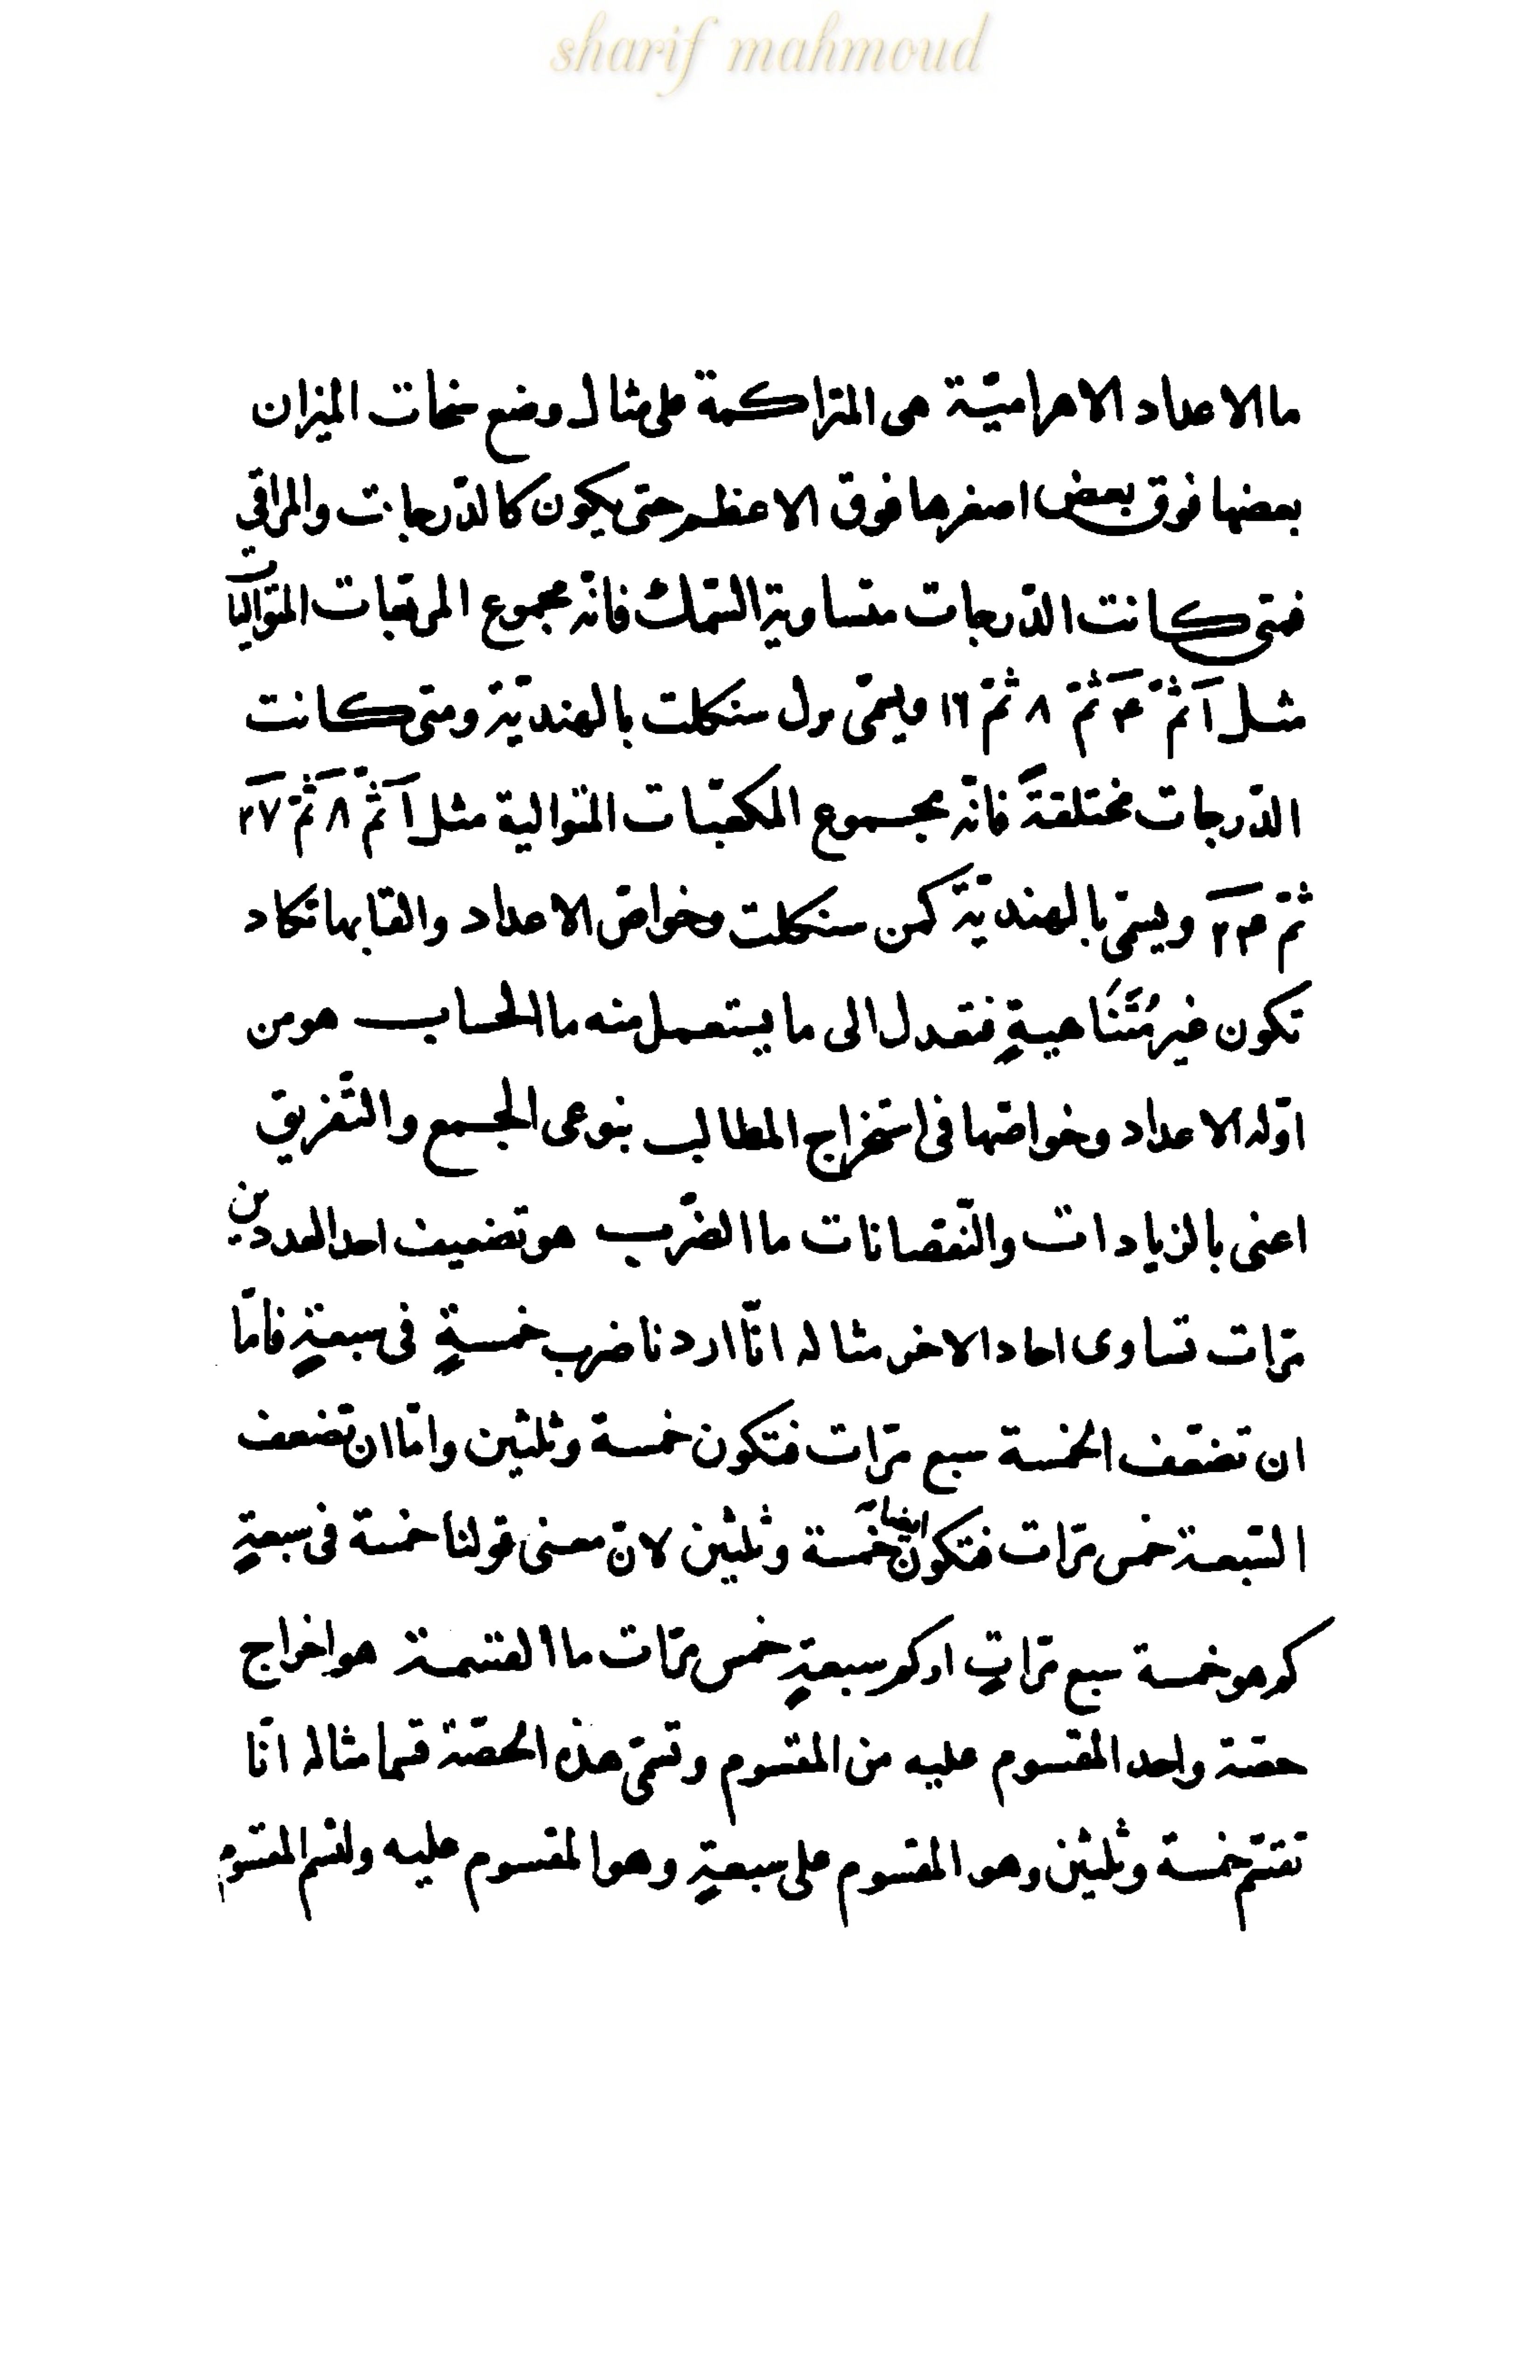 sharif mahmoud
ما الاعداد الاهراميّة هى المتراكمة على مثال وضع سنجات الميزان
بعضها فوق بعض اصغرها فوق الاعظم حتى يكون كالدّرجات والمراقى
فمتى كانت الدّرجات متساوية السّمك فانّه مجموع المربّعات المتواليات
مثل آ ثمّ ۴ ثمّ ٨ ثمّ ١٦ ويسمّى برل سنكلت بالهنديّة ومتى كانت
الدّرجات مختلفةً فانّه مجموع المكعّبات المتوالية مثل آ ثمّ ٨ ثمّ ٢٧
ثمّ ويسمّى بالهنديّة كهن سنكلت وخواصّ الاعداد والقابها تكاد
تكون غير مُتَنَاهيةٍ فنعدل الى ما يستعمل منه ما الحساب هو من
اوّله الاعداد وخواصّها فى استخراج المطالب بنوعى الجمع والتّفريق
اعنى بالزيادات والنّقصانات ما الضّرب هو تضعيف احد العددين
مرّات تساوى احاد الاخر مثاله انّا اردنا ضرب خمسةٍ فى سبعةٍ فامّا
ان تضعّف الخمسة سبع مرّات فتكون خمسة وثلثين وامّا ان تضعف
السّبعة خمس مرّات فتكون ايضا خمسة وثلثين لانّ معنى قولنا خمسة فى سبعةٍ
كم هو خمسة سبع مرّاتٍ او كم سبعةٍ خمس مرّات ما القسمة هو اخراج
حصّة واحد المقسوم عليه من المقسوم وتسمّى هذه الحصّة قسما مثاله انّا
نقسّم خمسة وثلثين وهو المقسوم على سبعةٍ وهو المقسوم عليه ولقسم المقسوم